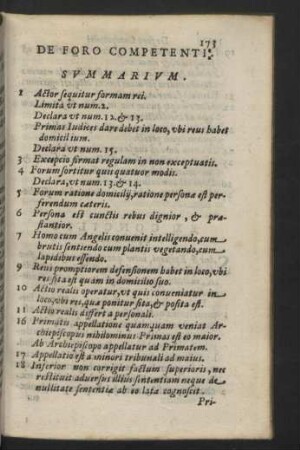 173
DE FORO COMPETENTI.
SVMMARIVM.
1 Actor sequitur formam rei.
Limita vt num.2.
Declara vt num.12.& 13.
Primas Iudices dare debet in loco, vbi reus habet
domicilium.
Declara vt num.15.
3 Excepcio firmat regulam in non exceptuatis.
4 Forum sortitur quis quatuor modis.
Declara, vt num.13.& 14.
5 Forum ratione domicilij, ratione persona est per
ferendum cateris.
6 Persona est cunctis rebus dignior, & præ
stantior.
7 Homo cum Angelis conuenit intelligendo, cum
brutis sentiendo cum plantis vegetando, cum
lapidibus essendo.
9 Reus promptiorem defensionem habet in loco, vbi
res sita est quam in domicilio suo.
10 Actio realis operatur, vt quis conueniatur in
loco, vbi res, qua ponitur sita, & posita est.
11 Actio realis differt a personali.
16 Primatis appellatione quamquam veniat Ar
chiepiscopus nihilominus Primas est eo maior.
Ab Archiepiscopo appellatur ad Primatem.
17 Appellatio est a minori tribunali ad maius.
18 Inferior non corrigit factum superioris, nec
restituit aduersus illius sententiam neque de
nullitate sententia ab eo lata cognoscit.
Pri-